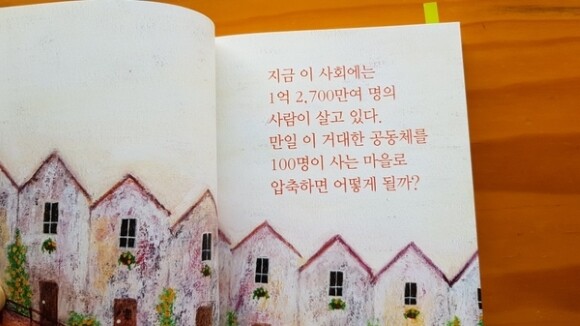 지금 이 사회에는
1억 2,700만여 명의
사람이 살고 있다.
만일 이 거대한 공동체를
100명이 사는 마을로
압축하면 어떻게 될까?